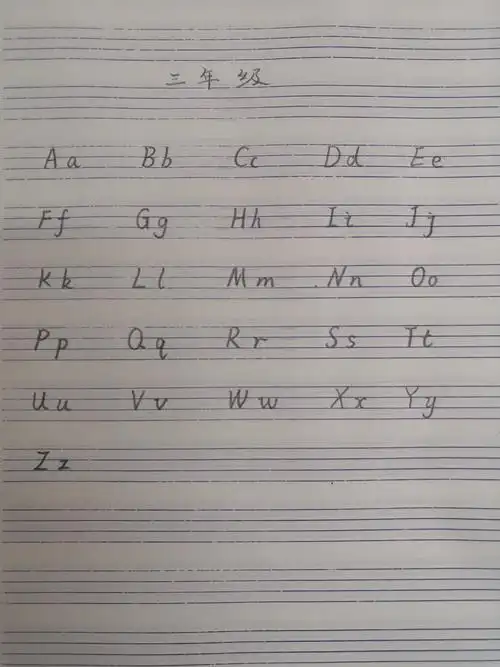 三年级
Aa Bb Cc Dd Ee
Ff Gg Hh Ii Jj
Kk Ll Mm Nn Oo
Pp Qq Rr Ss Tt
Uu Vv Ww Xx Yy
Zz